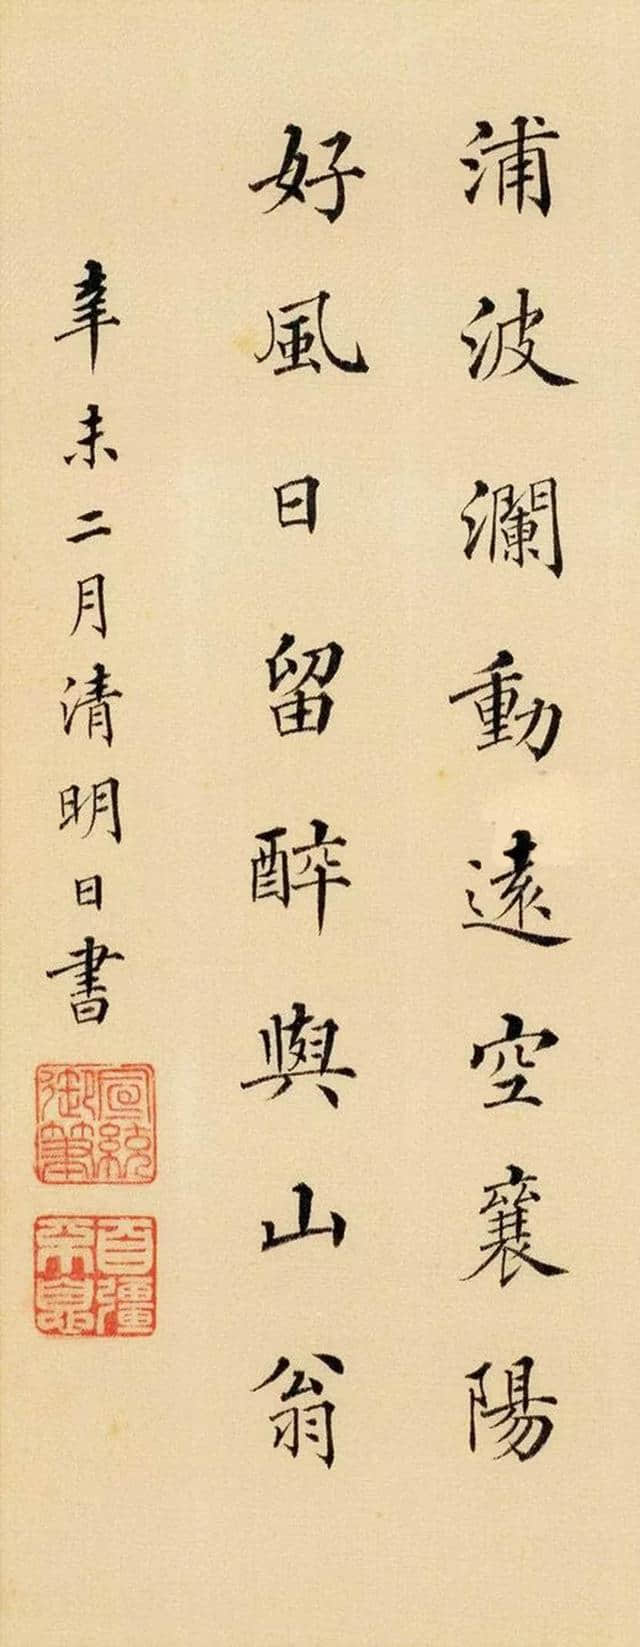 浦波瀾動遠空襄陽
好風日留醉與山翁
辛未二月清明日書
宣統御筆
自彊不息